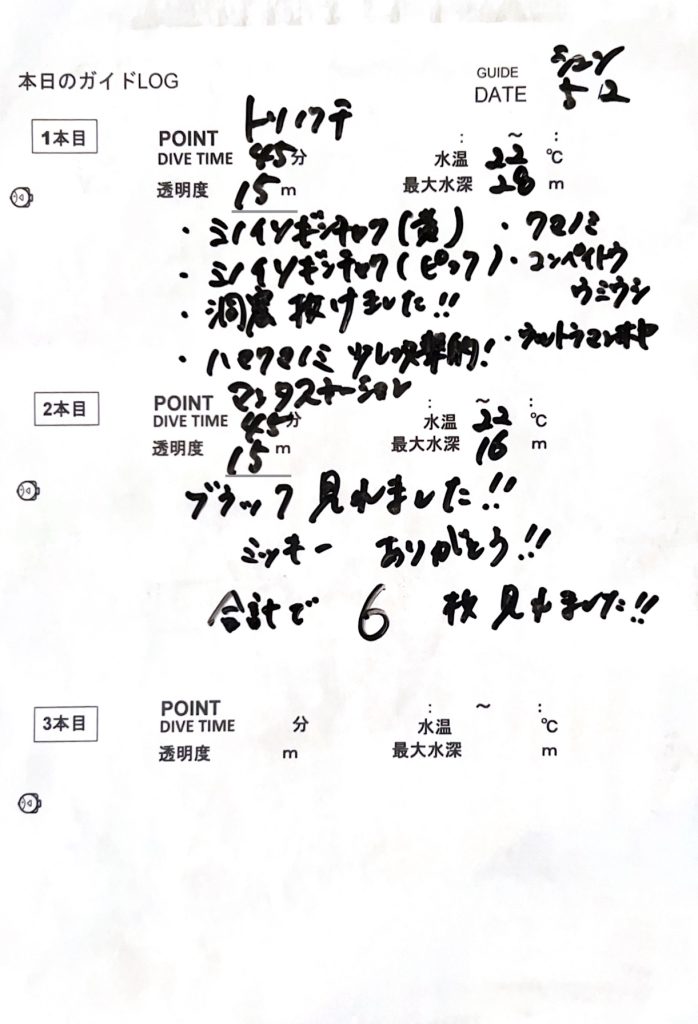 本日のガイドLOG
GUIDE ジュン
DATE 5 12
1本目
POINT トリノクチ
: ～ :
DIVE TIME 45分
水温 22 ℃
透明度 15 m
最大水深 28 m
・ミノイソギンチャク(黄) ・クマノミ
・ミノイソギンチャク(ピンク) ・コンペイトウ
ウミウシ
・洞窟 抜けました!!
・ハマクマノミ ツレ攻撃的! ・ウルトラマンホヤ
2本目
POINT マンタステーション
: ～ :
DIVE TIME 45分
水温 22 ℃
透明度 15 m
最大水深 16 m
ブラック 見れました!!
ミッキー ありがとう!!
合計で 6 枚 見れました!!
3本目
POINT
: ～ :
DIVE TIME 分
水温 ℃
透明度 m
最大水深 m